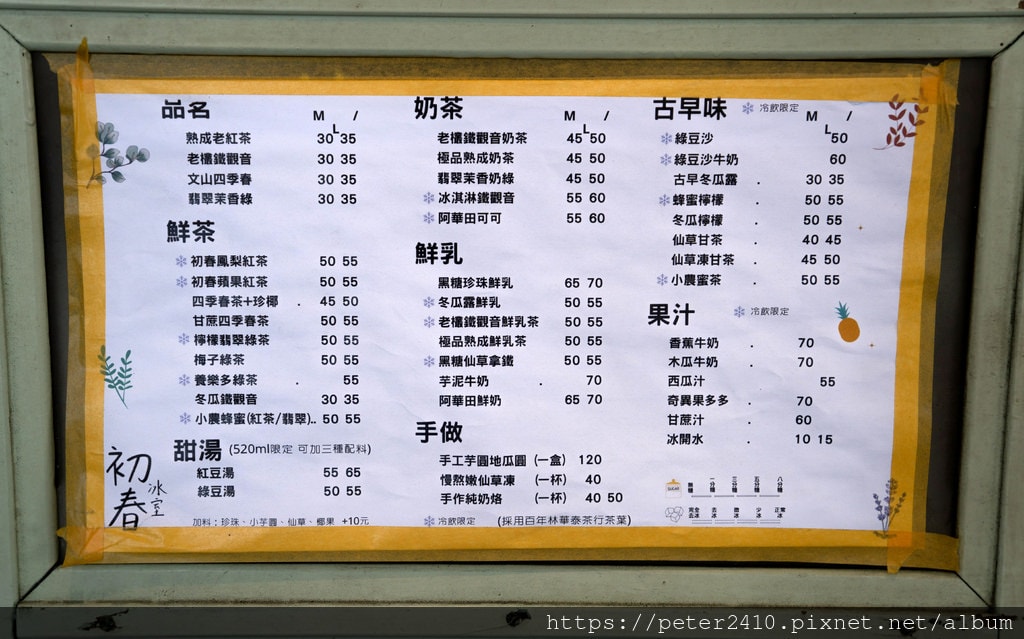 品名 M / L
熟成老紅茶 30 35
老欉鐵觀音 30 35
文山四季春 30 35
翡翠茉香綠 30 35
鮮茶
初春鳳梨紅茶 50 55
初春蘋果紅茶 50 55
四季春茶+珍椰 . 45 50
甘蔗四季春茶 50 55
檸檬翡翠綠茶 50 55
梅子綠茶 50 55
養樂多綠茶 . 55
冬瓜鐵觀音 30 35
小農蜂蜜(紅茶/翡翠).. 50 55
甜湯 (520ml限定 可加三種配料)
紅豆湯 55 65
綠豆湯 50 55
加料：珍珠、小芋圓、仙草、椰果 +10元
初春冰室
奶茶 M / L
老欉鐵觀音奶茶 45 50
極品熟成奶茶 45 50
翡翠茉香奶綠 45 50
冰淇淋鐵觀音 55 60
阿華田可可 55 60
鮮乳
黑糖珍珠鮮乳 65 70
冬瓜露鮮乳 50 55
老欉鐵觀音鮮乳茶 50 55
極品熟成鮮乳茶 50 55
黑糖仙草拿鐵 50 55
芋泥牛奶 . 70
阿華田鮮奶 65 70
手做
手工芋圓地瓜圓 (一盒) 120
慢熬嫩仙草凍 (一杯) 40
手作純奶烙 (一杯) 40 50
冷飲限定 (採用百年林華泰茶行茶葉)
古早味 冷飲限定 M / L
綠豆沙 50
綠豆沙牛奶 60
古早冬瓜露 . 30 35
蜂蜜檸檬 . 50 55
冬瓜檸檬 . 50 55
仙草甘茶 . 40 45
仙草凍甘茶 . 45 50
小農蜜茶 . 50 55
果汁 冷飲限定
香蕉牛奶 . 70
木瓜牛奶 . 70
西瓜汁 . 55
奇異果多多 . 70
甘蔗汁 . 60
冰開水 . 10 15
SUGAR 無糖 一分糖 三分糖 五分糖 八分糖
完全去冰 去冰 微冰 少冰 正常冰
https://peter2410.pixnet.net/album